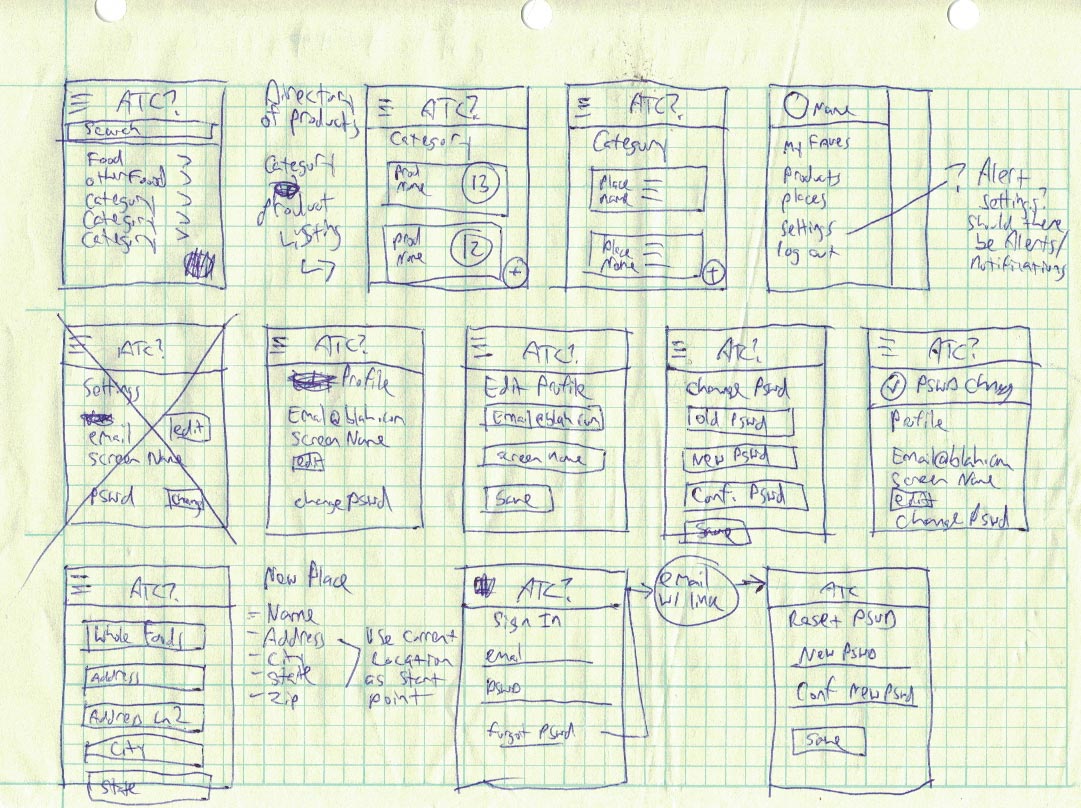 ATC?
Search
Food
other Food
Category
Category
Category
Directory
of products
Category
product
Listing
ATC?
Category
Prod
Name
13
Prod
Name
12
+
ATC?
Category
Place
name
Place
Name
+
Name
My Faves
Products
places
settings
log out
? Alert
settings?
should there
be Alerts/
notifications
ATC?
Settings
email
edit
Screen Name
PSWD
change
ATC?
Profile
Email@blah.com
Screen Name
edit
change PSWD
ATC?
Edit Profile
Email@blah.com
Screen name
Save
ATC?
change PSWD
old PSWD
New PSWD
Conf. PSWD
Save
ATC?
PSWD Chang
Profile
Email@blah.com
Screen Name
edit
Change PSWD
ATC?
Whole Foods
Address
Address Ln2
City
State
New Place
- Name
- Address
- City
- State
- Zip
Use current
Location
as start
point
ATC?
Sign In
email
PSWD
forgot PSWD
email
w/ link
ATC
Reset PSWD
New PSWD
Conf New PSWD
Save